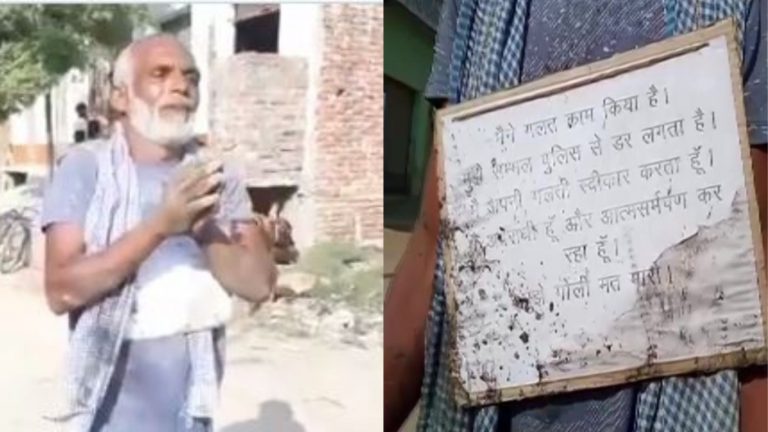 मैंने गलत काम किया है।
सम्भल पुलिस से डर लगता है।
अपनी गलती स्वीकार करता हूँ।
हूँ और आत्मसर्मपण कर
रहा हूँ।
गोली मत मारो।